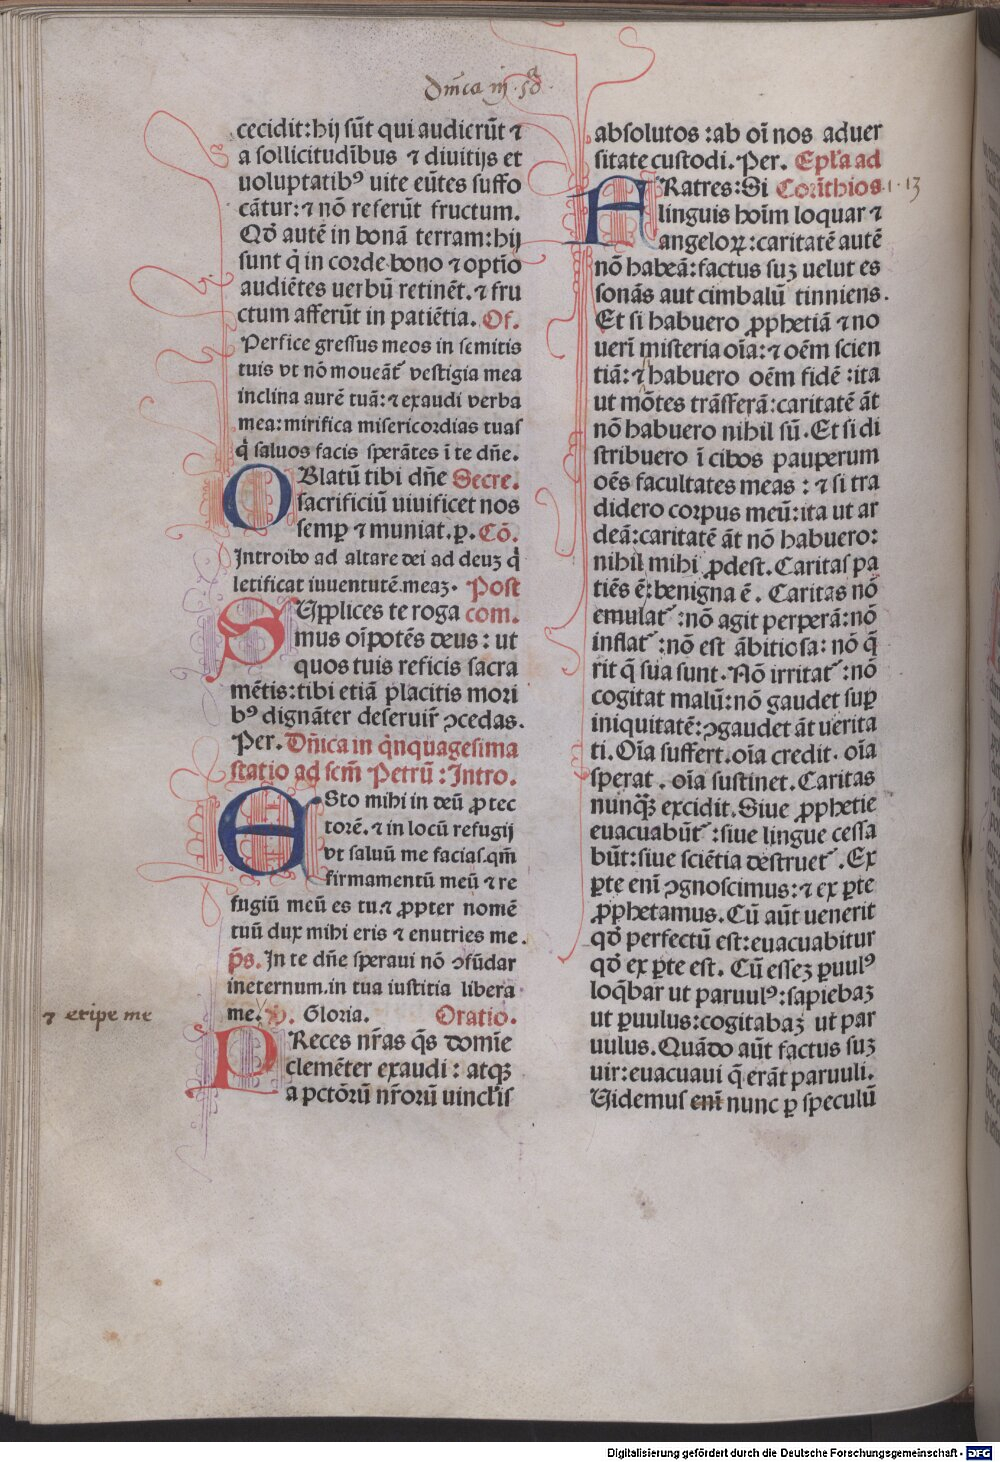 Dm̄ca iij
cecidit: hij sūt qui audierūt ⁊
a sollicitudībus ⁊ diuitijs et
uoluptatibꝰ uite eūtes suffo
cātur: ⁊ nō referūt fructum.
Qđ autē in bonā terram: hij
sunt q̄ in corde bono ⁊ optīo
audiētes uerbū retinēt. ⁊ fru
ctum afferūt in patiētia. Of.
Perfice gressus meos in semitis
tuis vt nō moueāt᷑ vestigia mea
inclina aurē tuā: ⁊ exaudi verba
mea: mirifica misericordias tuas
q̄ saluos facis sperātes ī te dn̄e.
OBlatū tibi dn̄e Secre.
sacrificiū uiuificet nos
semꝑ ⁊ muniat. p. Cō.
Introibo ad altare dei ad deuꝫ q̄
letificat iuuentutē meaꝫ. Post
SUpplices te roga com.
mus oīpotēs deus: ut
quos tuis reficis sacra
mētis: tibi etiā placitis mori
bꝰ dignāter deseruir̄ ↄcedas.
Per. Dn̄ica in q̄nquagesima
statio ad scm̄ Petrū: Intro.
ESto mihi in deū ꝓtec
torē. ⁊ in locū refugij
vt saluū me facias. qm̄
firmamentū meū ⁊ re
fugiū meū es tu: ⁊ ꝓpter nomē
tuū dux mihi eris ⁊ enutries me.
p̄s. In te dn̄e speraui nō ↄfūdar
ineternum. in tua iustitia libera
⁊ eripe me
me. V. Gloria. Oratio.
PReces nr̄as q̄s domīe
clemēter exaudi: atqꝫ
a pctōrū nr̄orū uinclis
absolutos: ab oī nos aduer
sitate custodi. Per. Epl̄a ad
FRatres: Si Corīthios 1. 13
linguis hoīm loquar ⁊
angeloꝝ: caritatē autē
nō habeā: factus suꝫ uelut es
sonās aut cimbalū tinniens.
Et si habuero ꝓphetiā ⁊ no
uerī misteria oīa: ⁊ oēm scien
tiā: ⁊ habuero oēm fidē: ita
ut mōtes trāsferā: caritatē āt
nō habuero nihil sū. Et si di
stribuero ī cibos pauperum
oēs facultates meas: ⁊ si tra
didero corpus meū: ita ut ar
deā: caritatē āt nō habuero:
nihil mihi ꝓdest. Caritas pa
tiēs ē: benigna ē. Caritas nō
emulat᷑: nō agit perperā: nō
inflat᷑: nō est ābitiosa: nō q̄
rit q̄ sua sunt. Nō irritat᷑: nō
cogitat malū: nō gaudet suꝑ
iniquitatē: ↄgaudet āt uerita
ti. Oīa suffert. oīa credit. oīa
sperat. oīa sustinet. Caritas
nunq̄ꝫ excidit. Siue ꝓphetie
euacuabūt᷑: siue lingue cessa
būt: siue sciētia destruet᷑. Ex
ꝑte enī ↄgnoscimus: ⁊ ex ꝑte
ꝓphetamus. Cū aūt uenerit
qđ perfectū est: euacuabitur
qđ ex ꝑte est. Cū esseꝫ ꝑuulꝰ
loq̄bar ut paruulꝰ: sapiebaꝫ
ut ꝑuulus: cogitabaꝫ ut par
uulus. Quādo aūt factus suꝫ
uir: euacuaui q̄ erāt paruuli.
Videmus enī nunc ꝑ speculū
Digitalisierung gefördert durch die Deutsche Forschungsgemeinschaft - DFG